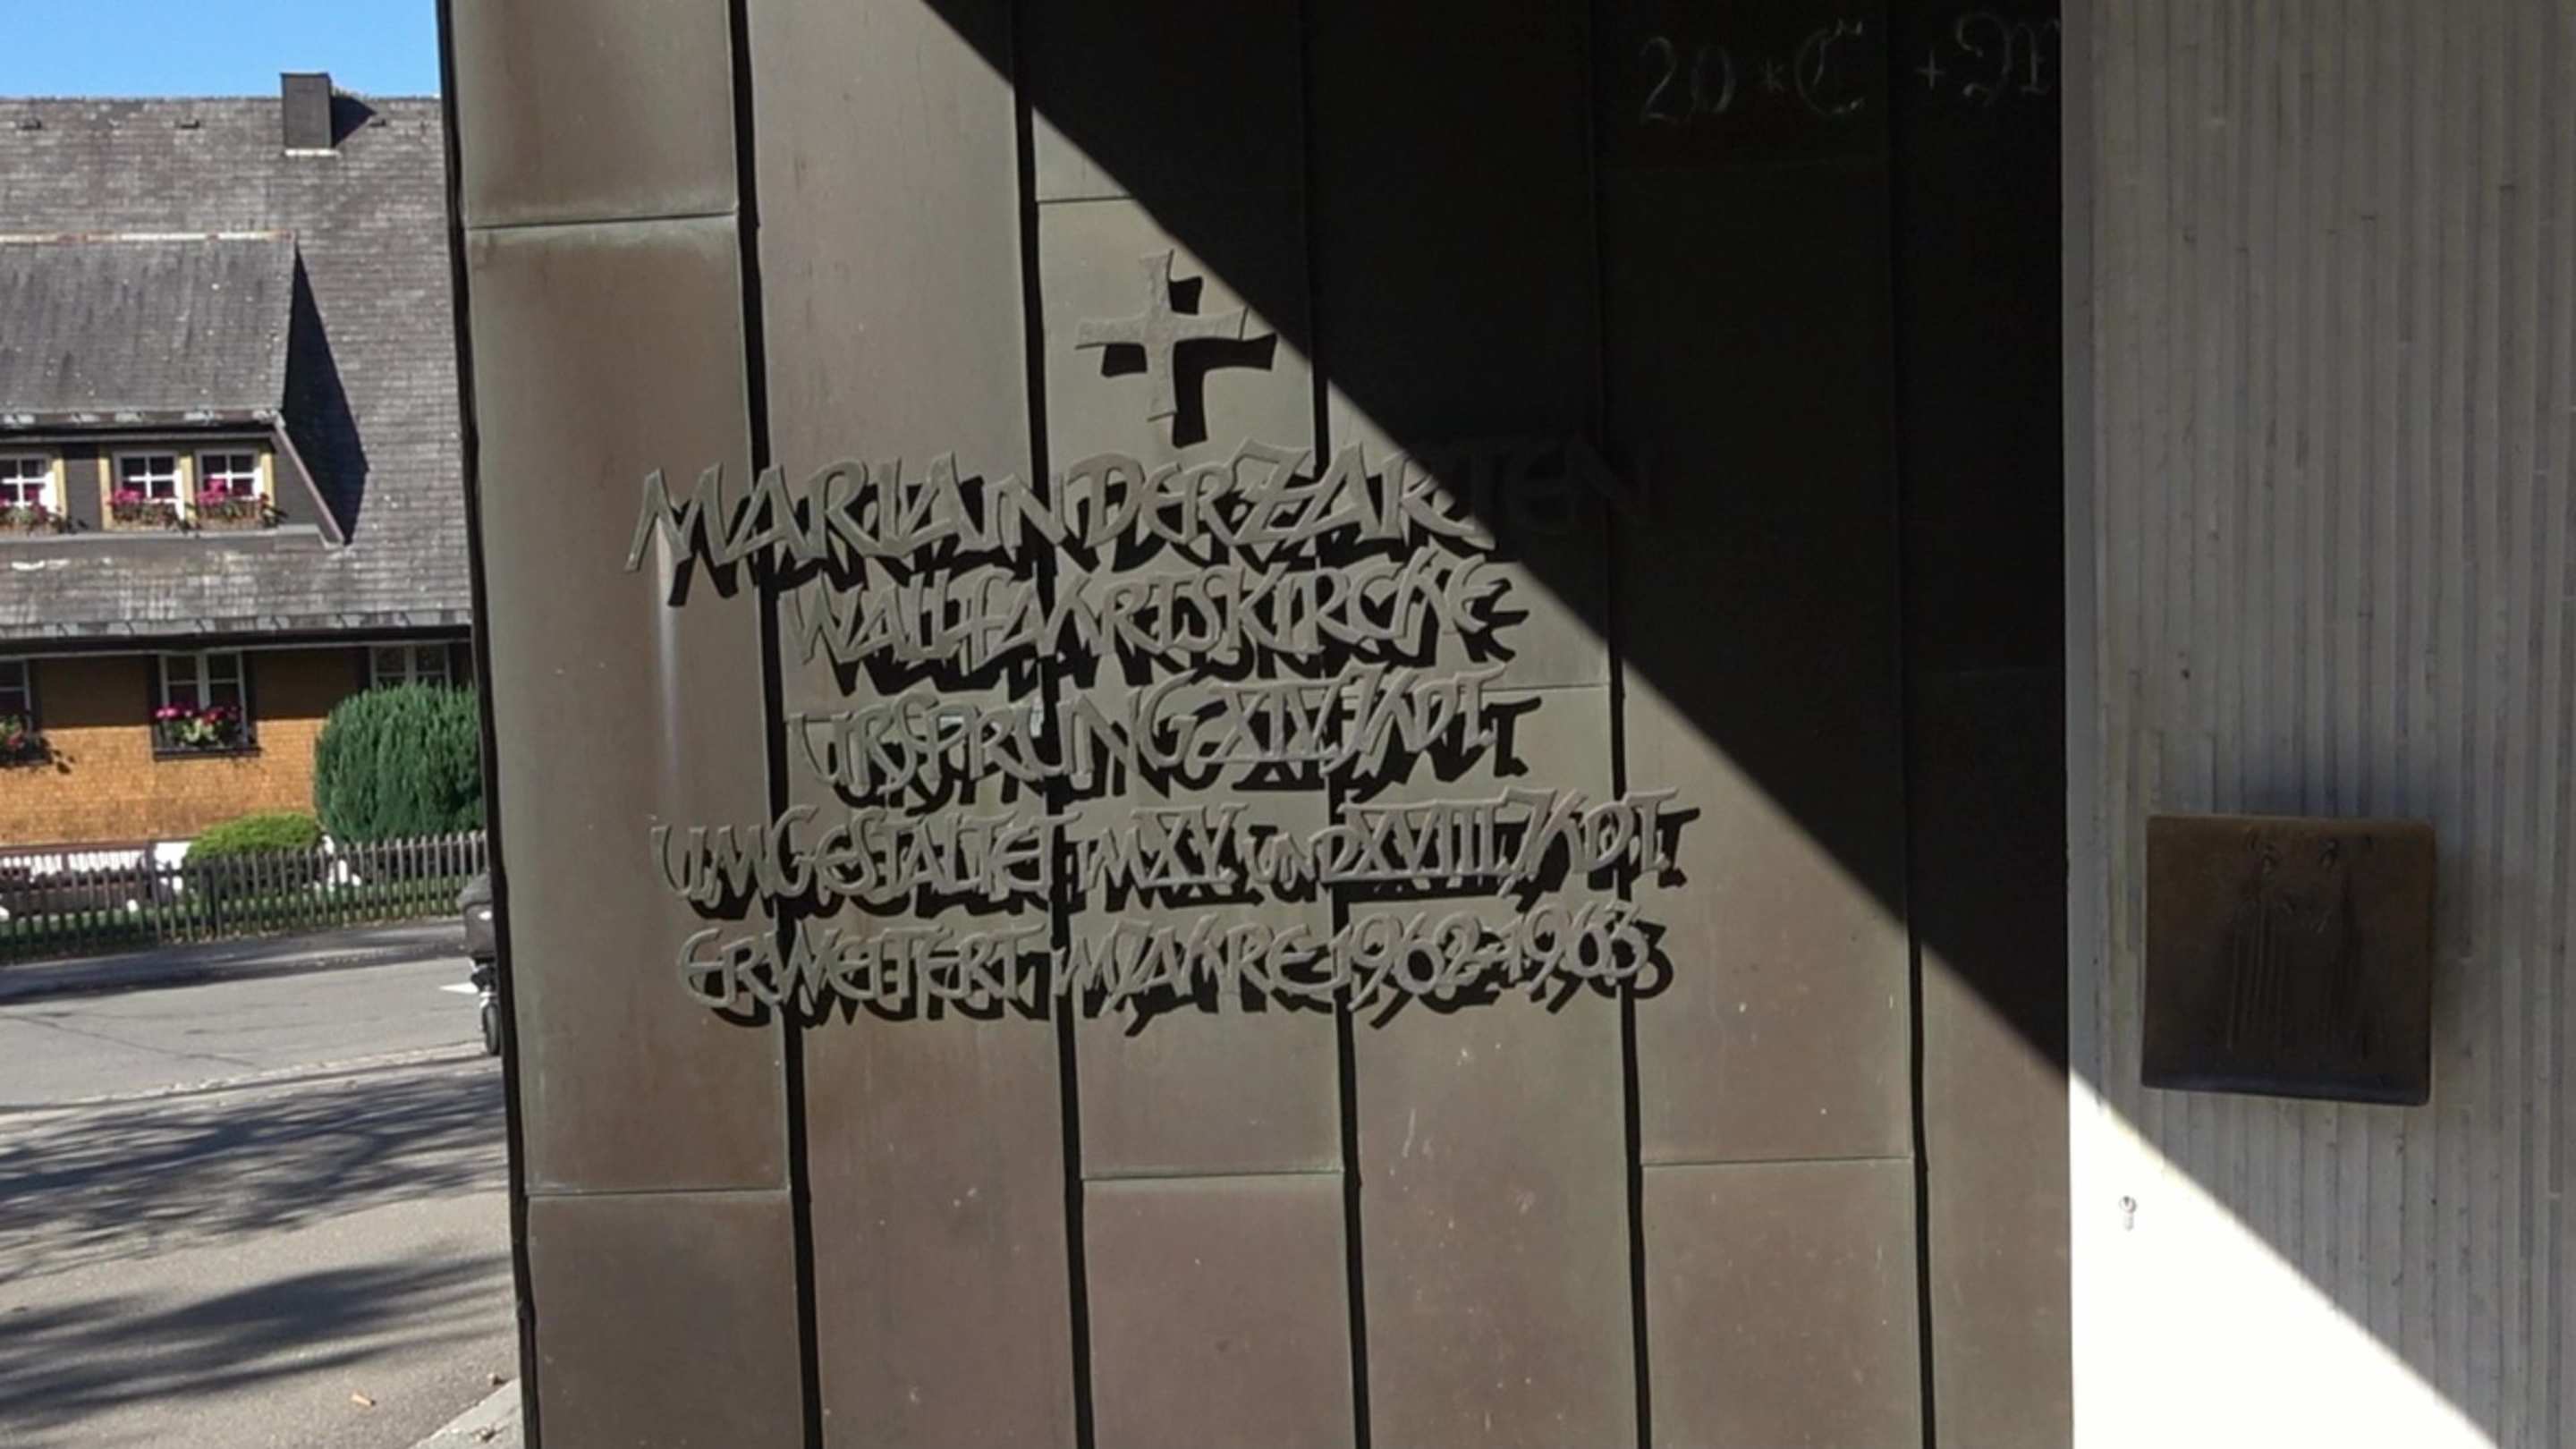 20 * C + M
MARIA IN DER ZARTEN
WALLFAHRTSKIRCHE
URSPRUNG XIV. JHDT.
UMGESTALTET IM XV. UND XVIII. JHDT.
ERWEITERT IM JAHRE 1962-1963